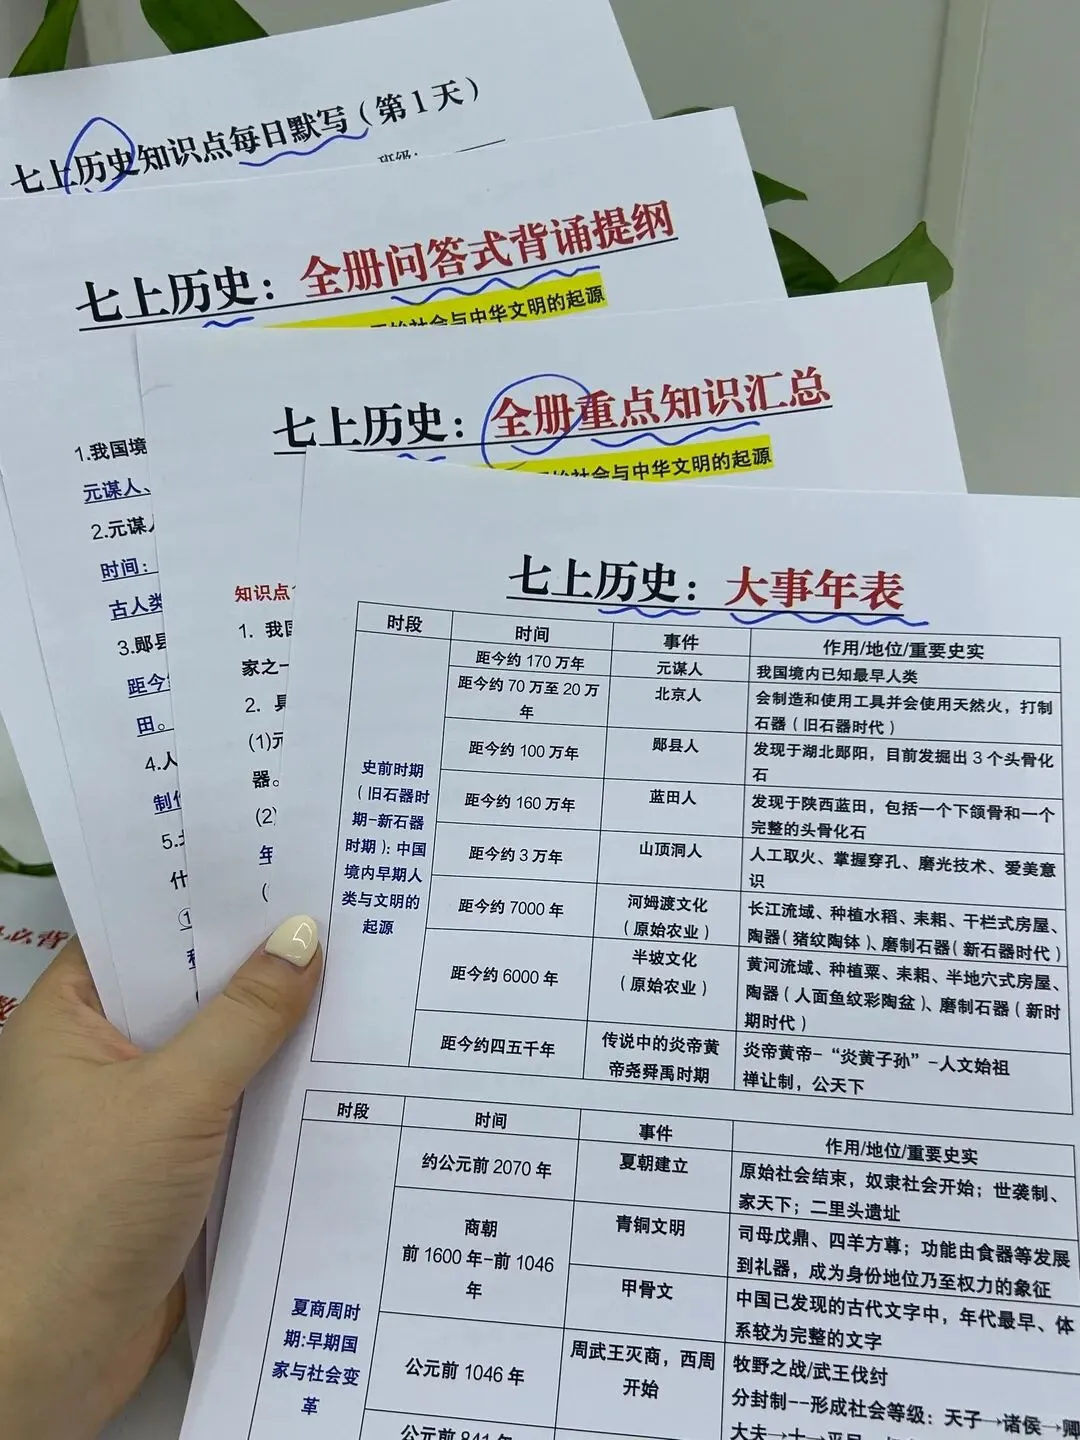 七上历史知识点每日默写（第1天）
班级：
七上历史：全册问答式背诵提纲
社会与中华文明的起源
1.我国境
元谋人、
2.元谋人
时间：
古人类
3.郧县
距今
田。
4.人
制作
5.北
什
①
七上历史：全册重点知识汇总
社会与中华文明的起源
知识点
1. 我国
家之一
2. 具
(1)元
器。
(2)
年
(
必背
七上历史：大事年表
时段 时间 事件 作用/地位/重要史实
史前时期
（旧石器时
期-新石器
时期）：中国
境内早期人
类与文明的
起源
距今约 170 万年 元谋人 我国境内已知最早人类
距今约 70 万至 20 万
年
北京人
会制造和使用工具并会使用天然火，打制
石器（旧石器时代）
距今约 100 万年 郧县人
发现于湖北郧阳，目前发掘出 3 个头骨化
石
距今约 160 万年 蓝田人
发现于陕西蓝田，包括一个下颌骨和一个
完整的头骨化石
距今约 3 万年 山顶洞人
人工取火、掌握穿孔、磨光技术、爱美意
识
距今约 7000 年
河姆渡文化
（原始农业）
长江流域、种植水稻、耒耜、干栏式房屋、
陶器（猪纹陶钵）、磨制石器（新石器时代）
距今约 6000 年
半坡文化
（原始农业）
黄河流域、种植粟、耒耜、半地穴式房屋、
陶器（人面鱼纹彩陶盆）、磨制石器（新时
期时代）
距今约四五千年
传说中的炎帝黄
帝尧舜禹时期
炎帝黄帝-“炎黄子孙”-人文始祖
禅让制，公天下
时段 时间 事件 作用/地位/重要史实
夏商周时
期:早期国
家与社会变
革
约公元前 2070 年 夏朝建立
原始社会结束，奴隶社会开始；世袭制、
家天下；二里头遗址
商朝
前 1600 年-前 1046
年
青铜文明
司母戊鼎、四羊方尊；功能由食器等发展
到礼器，成为身份地位乃至权力的象征
甲骨文
中国已发现的古代文字中，年代最早、体
系较为完整的文字
公元前 1046 年
周武王灭商，西周
开始
牧野之战/武王伐纣
分封制--形成社会等级：天子→诸侯→卿
大夫→士→平民
公元前 841 年